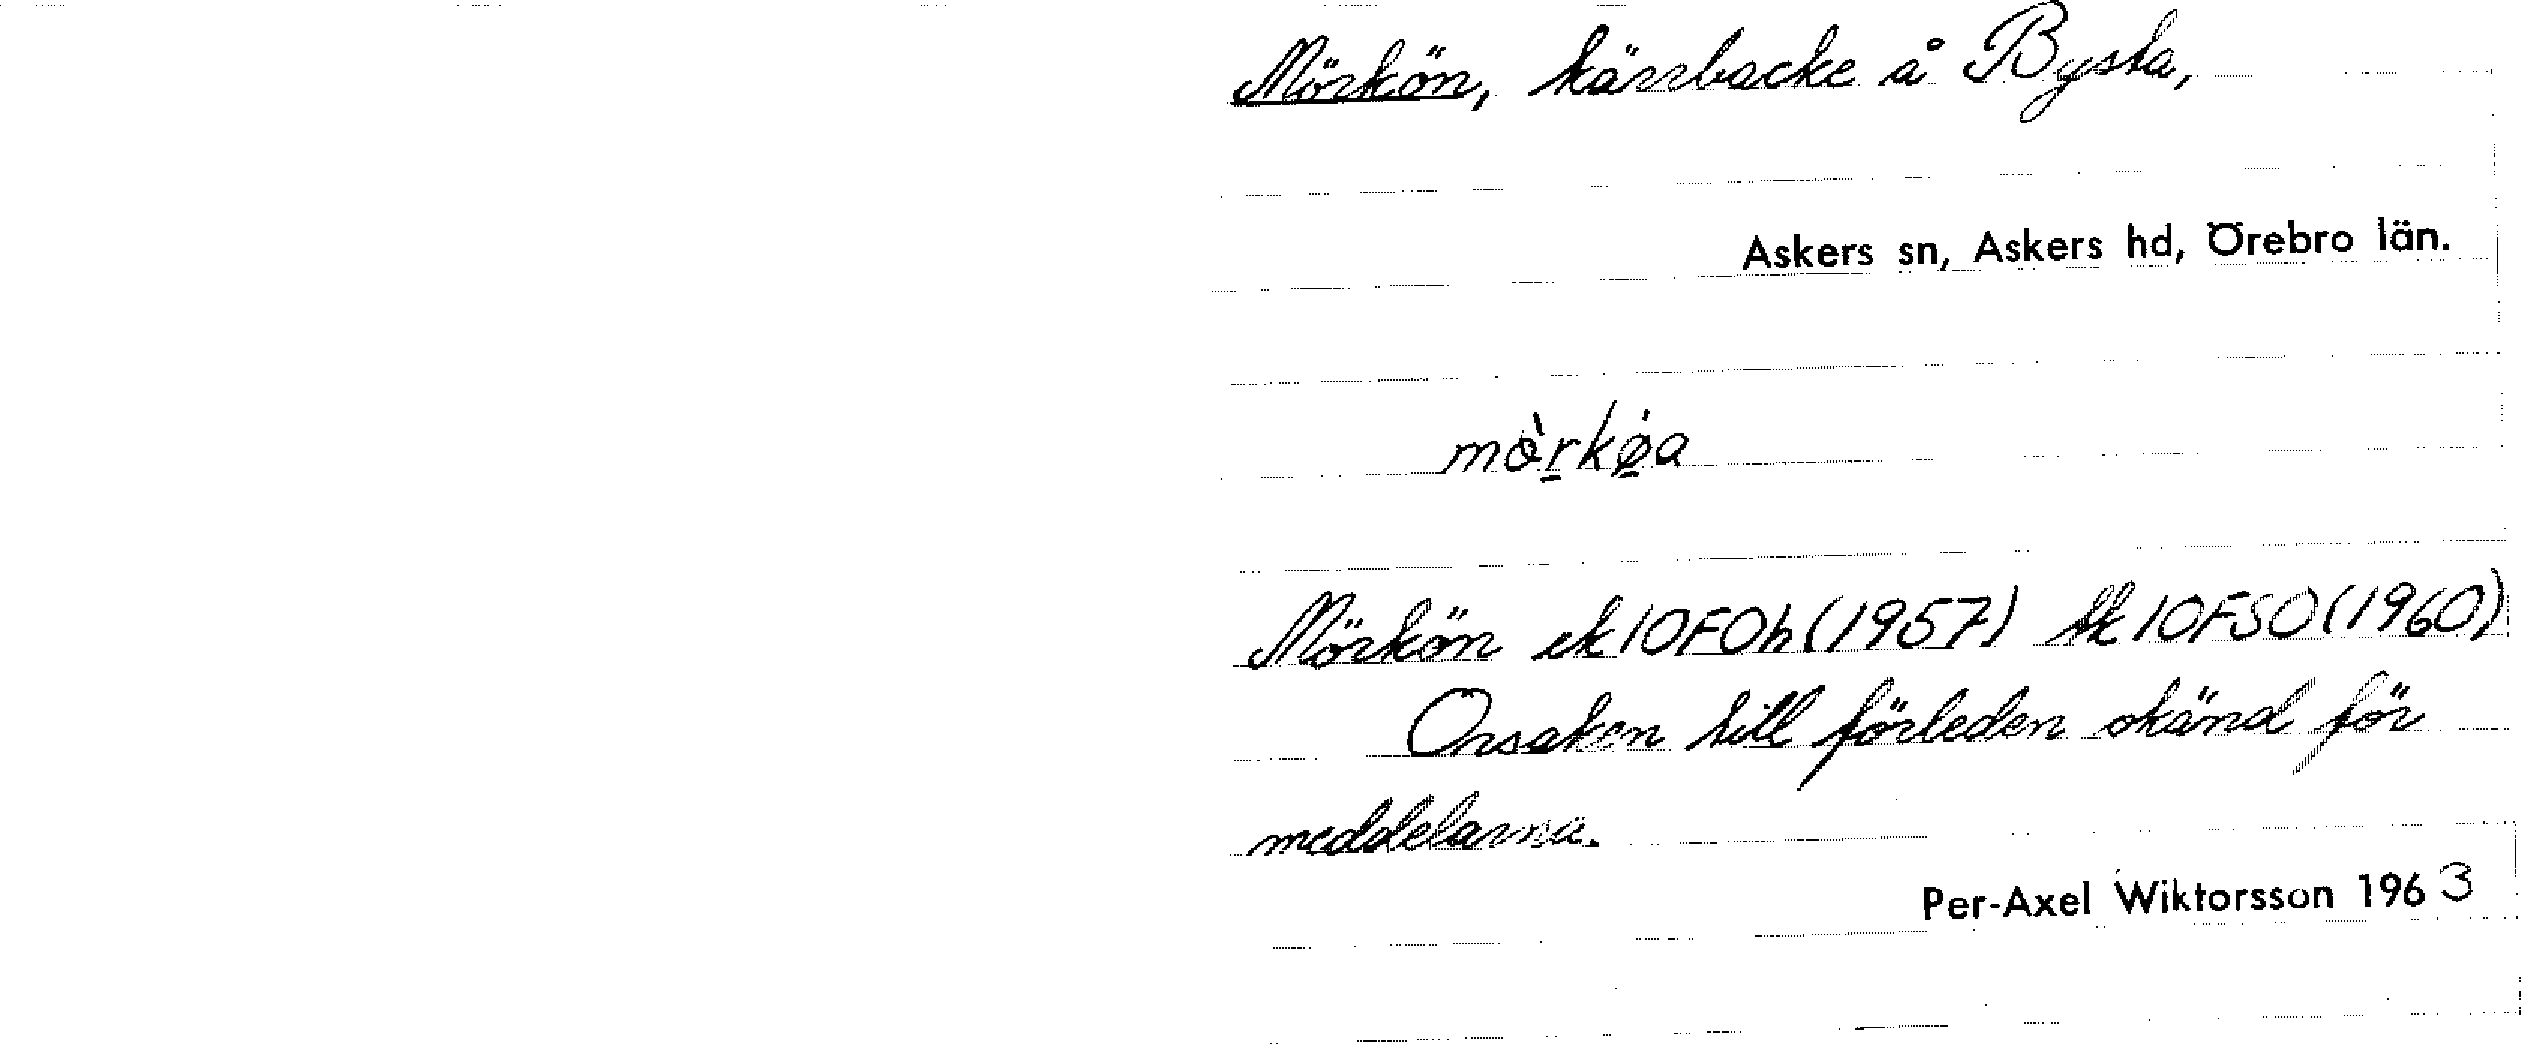 Mörkön, kärrbacke å Bysta,
Askers sn, Askers hd, Örebro län.
mörkøa
Mörkön ek 10F0h (1957) tk 10FSO (1960)
Orsaken till förleden okänd för
meddelarna.
Per-Axel Wiktorsson 1963